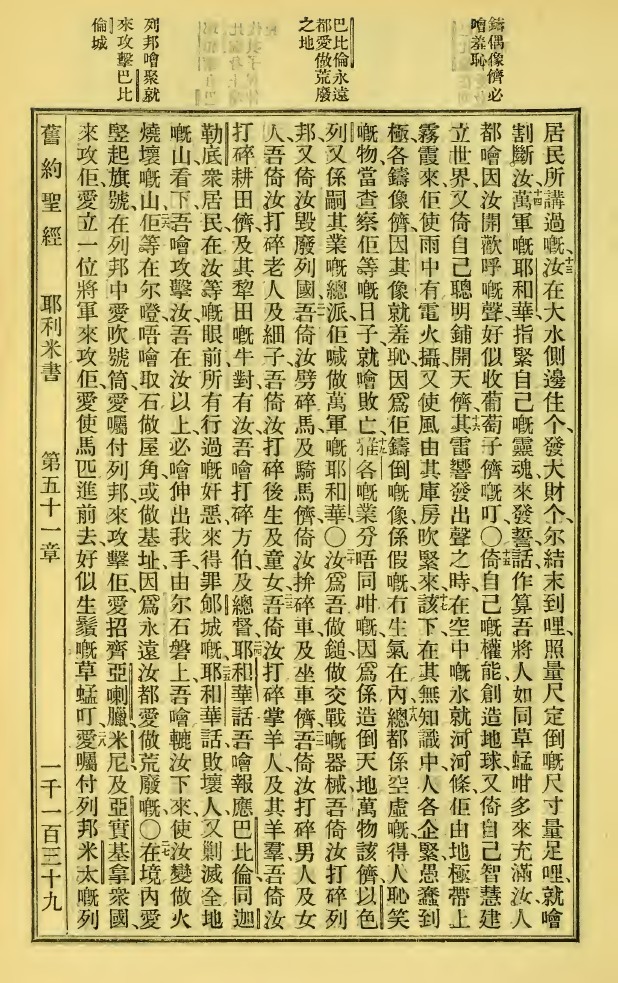 鑄偶像儕必
噲羞恥
巴比倫永遠
都愛做荒廢
之地
列邦噲聚就
來攻擊巴比
倫城
居民所講過嘅十三汝在大水側邊住个、發大財个、尔結末到哩、照量尺定倒嘅尺寸量足哩、就噲
割斷汝十四萬軍嘅耶和華指緊自己嘅靈魂來發誓話作算吾將人如同草蜢咁多來充滿汝、人
都噲因汝開歡呼嘅聲好似收葡萄子儕嘅叮○十五倚自己嘅權能創造地球、又倚自己智慧建
立世界、又倚自己聰明鋪開天儕、十六其雷響發出聲之時、在空中嘅水就河河條、佢由地極帶上
霧霞來、佢使雨中有電火攝、又使風由其庫房吹緊來、十七該下在其無知識中人各企緊愚蠢到
極、各鑄像儕因其像就羞恥、因爲佢鑄倒嘅像係假嘅冇生氣在內、十八總都係空虛嘅得人恥笑
嘅物、當查察佢等嘅日子就噲敗亡、十九雅各嘅業分唔同咁嘅、因爲係造倒天地萬物該儕、以色
列又係嗣其業嘅總派、佢喊做萬軍嘅耶和華○二十汝爲吾做鎚做交戰嘅器械、吾倚汝打碎列
邦、又倚汝毀廢列國、二一吾倚汝劈碎馬及騎馬儕、倚汝拚碎車及坐車儕、二二吾倚汝打碎男人及女
人、吾倚汝打碎老人及細子、吾倚汝打碎後生及童女、二三吾倚汝打碎掌羊人及其羊羣、吾倚汝
打碎耕田儕及其犂田嘅牛對有汝、吾噲打碎方伯及總督、二四耶和華話吾噲報應巴比倫同迦
勒底衆居民、在汝等嘅眼前所有行過嘅奸惡來得罪郇城嘅、二五耶和華話敗壞人、又剿滅全地
嘅山看下、吾噲攻擊汝、吾在汝以上必噲伸出我手、由尔石磐上吾噲轆汝下來、使汝變做火
燒壞嘅山、二六佢等在尔嶝唔噲取石做屋角、或做基址、因爲永遠汝都愛做荒廢嘅○二七在境內愛
竪起旗號、在列邦中愛吹號筒、愛囑付列邦來攻擊佢、愛招齊亞喇臘、米尼及亞實基拿衆國、
來攻佢、愛立一位將軍來攻佢、愛使馬匹進前去好似生鬚嘅草蜢叮、二八愛囑付列邦米太嘅列
舊約聖經　耶利米書　第五十一章　一千一百三十九